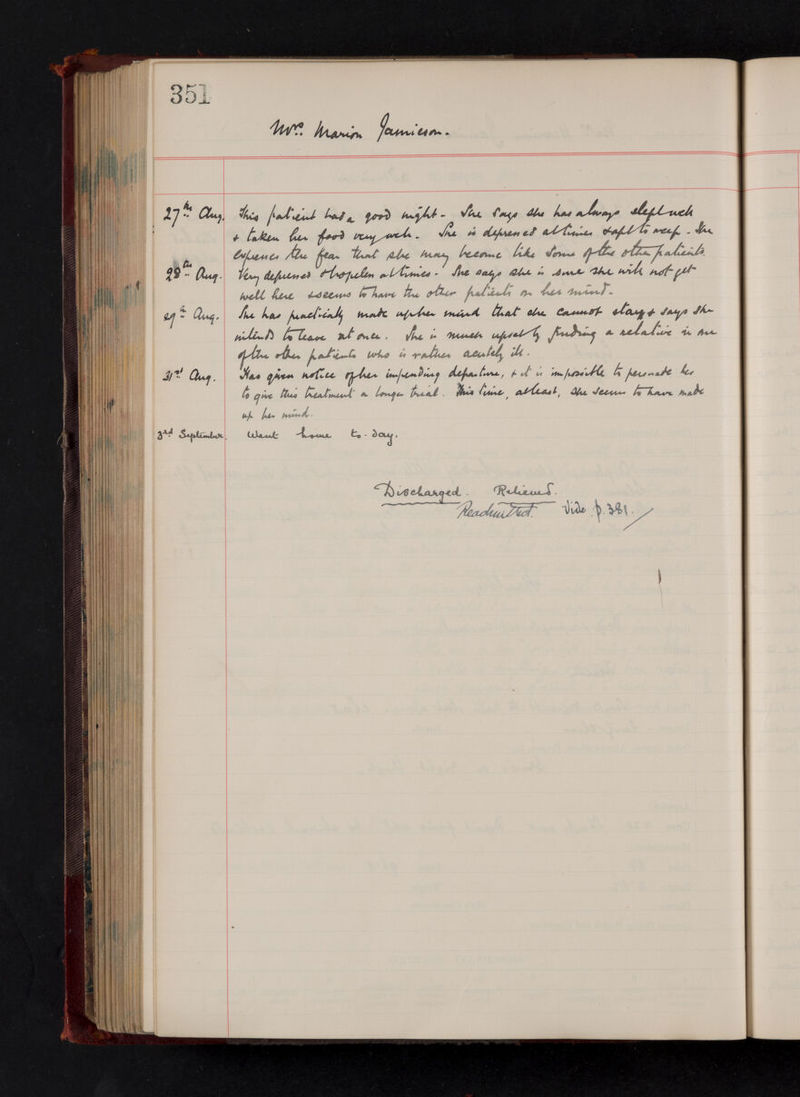 351
Mrs. Marion Jamieson.
27th Aug. This patient had a good night. She says she has always slept well
& taken her food very well. She is depressed at times & apt to weep. She
expresses the fear that she may become like some of the other patients.
28th Aug. Very depressed & hopeless at times. She says she is sure she will not get
well here & seems to have the other patients on her mind.
29th Aug. She has practically made up her mind that she cannot stay & says she
intends to leave at once. She is much upset by finding a relative in one
of the other patients who is rather acutely ill.
31st Aug. Has given notice of her impending departure, & it is impossible to persuade her
to give this treatment a longer trial. This time, at least, she seems to have made
up her mind.
3rd September. Went home to-day.
Discharged. Relieved.
Readmitted. Vide p. 381.